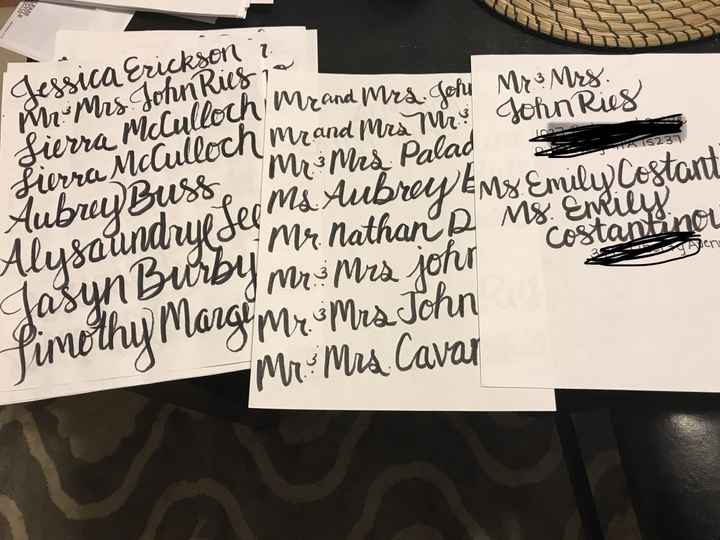 Jessica Erickson
Mr & Mrs John Ries
Sierra McCulloch
Sierra McCulloch
Aubrey Buss
Alysaundrye
Jasyn Burby
Timothy
Mr and Mrs. John
Mr and Mrs Mr &
Mr & Mrs.
Ms. Aubrey
Mr. Nathan D
Mr & Mrs John
Mr. & Mrs John
Mr. & Mrs.
Mr & Mrs.
John Ries
15237
Ms. Emily
Ms. Emily